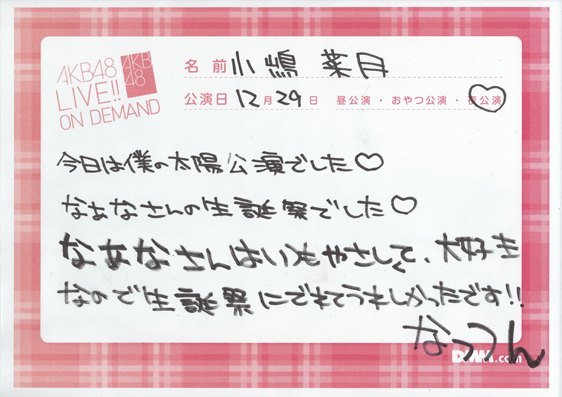 AKB48
LIVE!!
ON DEMAND
AKB
48
名前 小嶋菜月
公演日 12月29日 昼公演・おやつ公演・夜公演
今日は僕の太陽公演でした♡
なぁなさんの生誕祭でした♡
なぁなさんはいつもやさしくて、大好き
なので生誕祭にでれてうれしかったです!!
なっつん
DMM.com